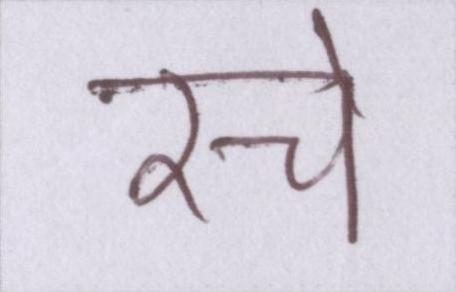 रचे